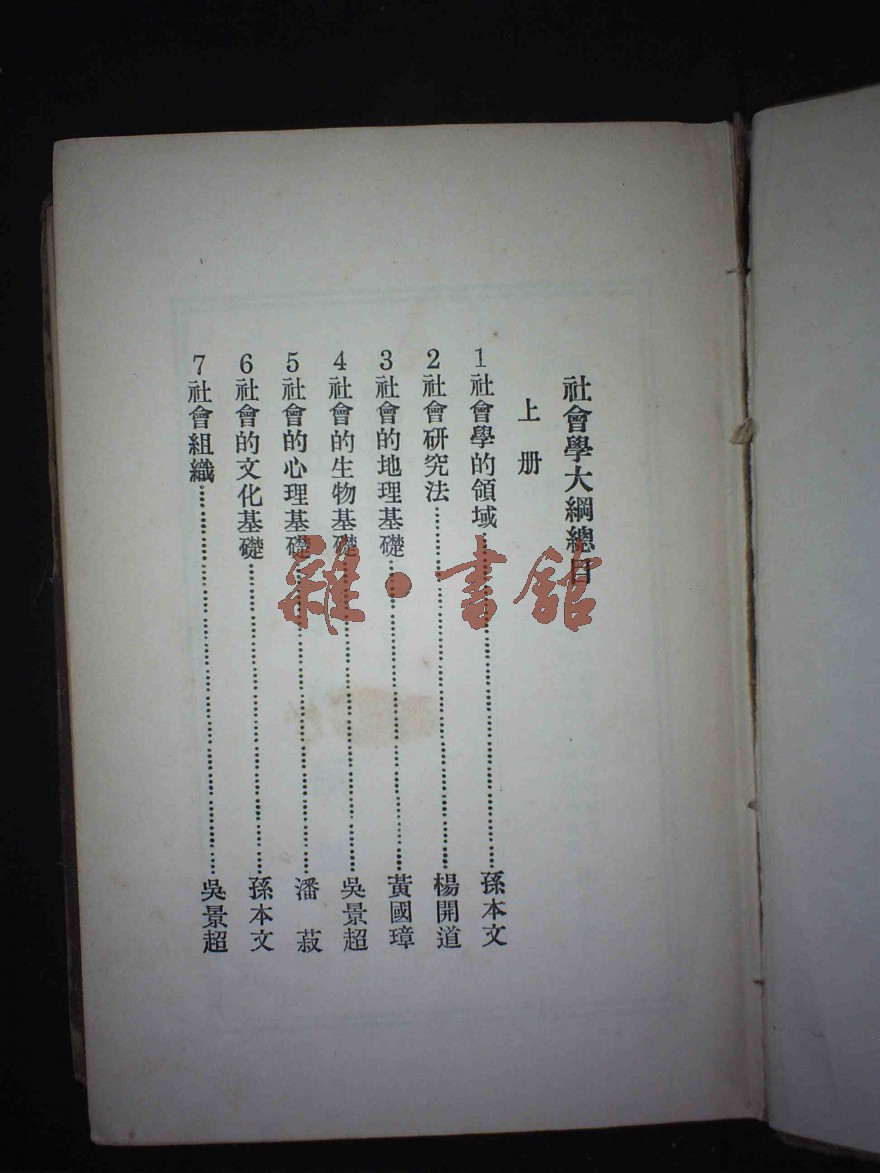 社會學大綱總目
上册
1 社會學的領域……孫本文
2 社會研究法……楊開道
3 社會的地理基礎……黃國璋
4 社會的生物基礎……吳景超
5 社會的心理基礎……潘菽
6 社會的文化基礎……孫本文
7 社會組織……吳景超
雜·書館